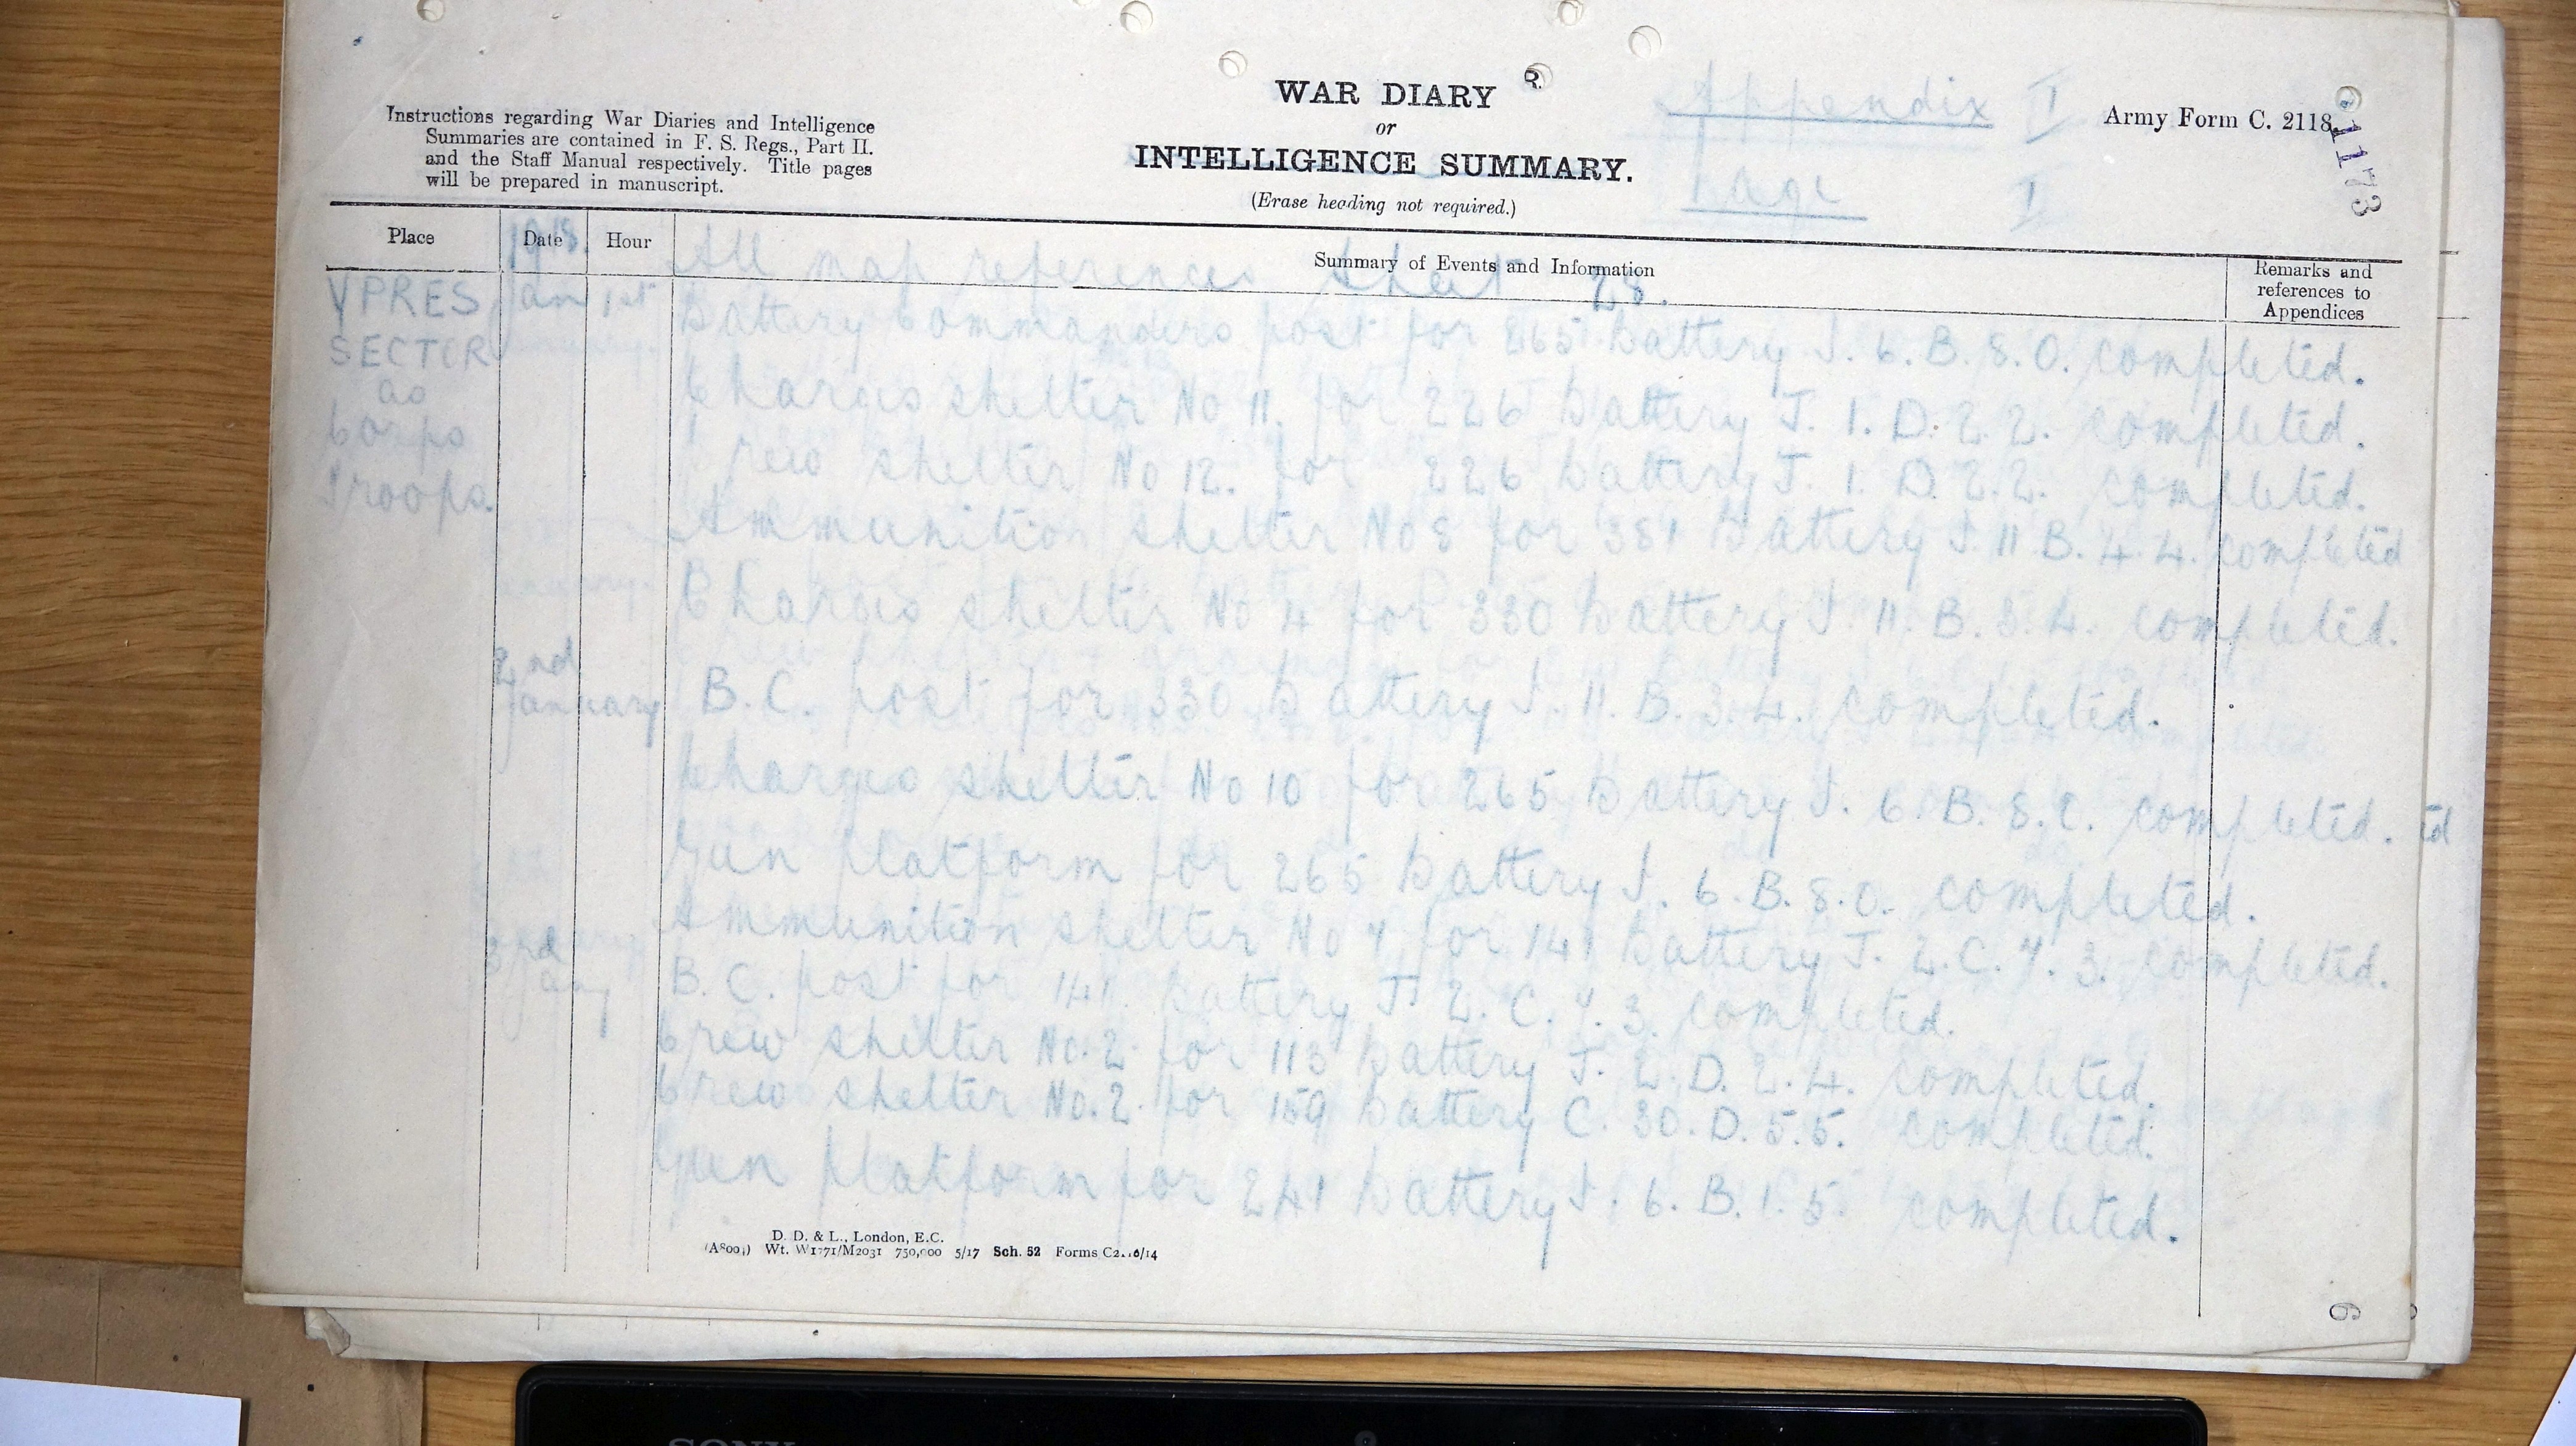 WAR DIARY
or
INTELLIGENCE SUMMARY.
(Erase heading not required.)
Instructions regarding War Diaries and Intelligence
Summaries are contained in F. S. Regs., Part II.
and the Staff Manual respectively. Title pages
will be prepared in manuscript.
Appendix I
Page I
Army Form C. 2118.
1173
Place Date Hour Summary of Events and Information Remarks and references to Appendices
1918.
All map references Sheet 28.
YPRES
SECTOR
as
Corps
Troops.
Jan 1st
Battery Commanders post for 265 Battery I. 6. B. 8. 0. completed.
Charges shelter No 11. for 226 Battery I. 1. D. 2. 2. completed.
Crew shelter No 12. for 226 Battery I. 1. D. 2. 2. completed.
Ammunition shelter No 8 for 381 Battery I. 11. B. 4. 4. completed
Charges shelter No 4 for 330 Battery I. 11. B. 3. 4. completed.
2nd
January
B.C. post for 330 Battery I. 11. B. 3. 4. completed.
Charges shelter No 10 for 265 Battery I. 6. B. 8. 0. completed.
Gun platform for 265 Battery I. 6. B. 8. 0. completed.
Ammunition shelter No 7 for 141 Battery I. 2. C. 7. 3. completed.
3rd
Jany
B.C. post for 141. Battery I. 2. C. 7. 3. completed.
Crew shelter No. 2 for 113 Battery I. 2. D. 2. 4. completed.
Crew shelter No. 2. for 159 Battery C. 30. D. 5. 5. completed.
Gun platform for 241 Battery I. 6. B. 1. 5. completed.
D. D. & L., London, E.C.
Wt. W1771/M2031 750,000 5/17 Sch. 52 Forms
6
SONY